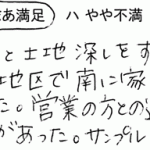 あ満足 ハ やや不満
と土地深しをす
地区で南に家
た。営業の方との
があった。サンプル